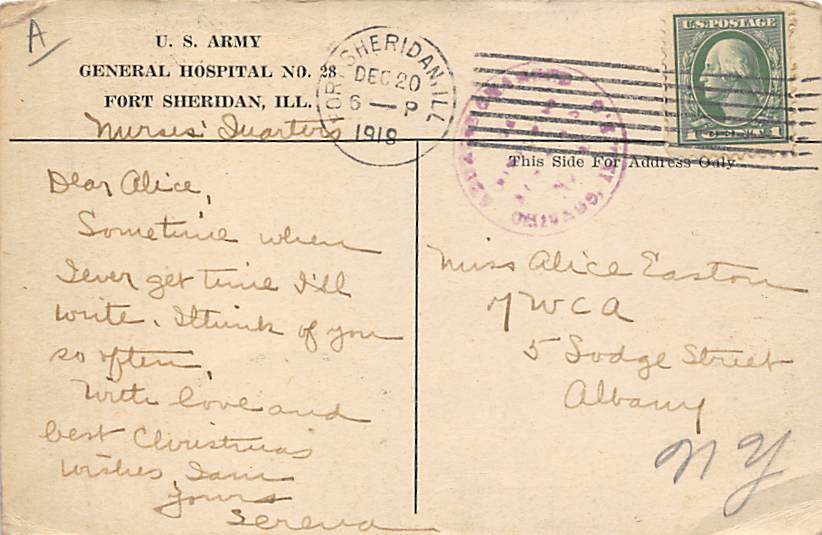 A
U. S. ARMY
GENERAL HOSPITAL NO. 28
FORT SHERIDAN, ILL.
Nurses' Quarters
FORT SHERIDAN, ILL.
DEC 20
6 — P
1918
U.S. POSTAGE
1 1
CHICAGO,
This Side For Address Only
Dear Alice,
Sometime when
I ever get time I'll
write. I think of you
so often,
With love and
best Christmas
wishes, I am
Yours
Serena
Miss Alice Easton
YWCA
5 Lodge Street
Albany
NY